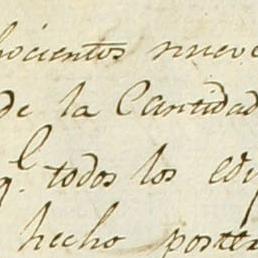 hocientos nueve
de la Cantidad
q.^l todos los edi
hecho poste